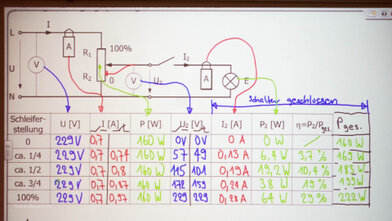 L
I
A
R₁
100%
I₂
A
U
V
R₂
0
V
U₂
E
N
Schalter geschlossen
Schleifer-stellung U [V] I [A] P [W] U₂ [V] I₂ [A] P₂ [W] η=P₂/Pges. Pges.
0 229V 0,7 160 W 0V 0V 0 A 0 W / 160 W
ca. 1/4 229V 0,7 0,74 160 W 57 49 0,13 A 6.4 W 3,7 % 169 W
ca. 1/2 229V 0,7 0,8 160 W 115 101 0,19 A 19,2 W 10.4 % 183 W
ca. 3/4 229V 0,7 0,87 160 W 172 159 0,24 A 38 W 19 % 199 W
100% 229V 0,7 0,97 160 W 229 229 0,28 A 64 W 29 % 222 W